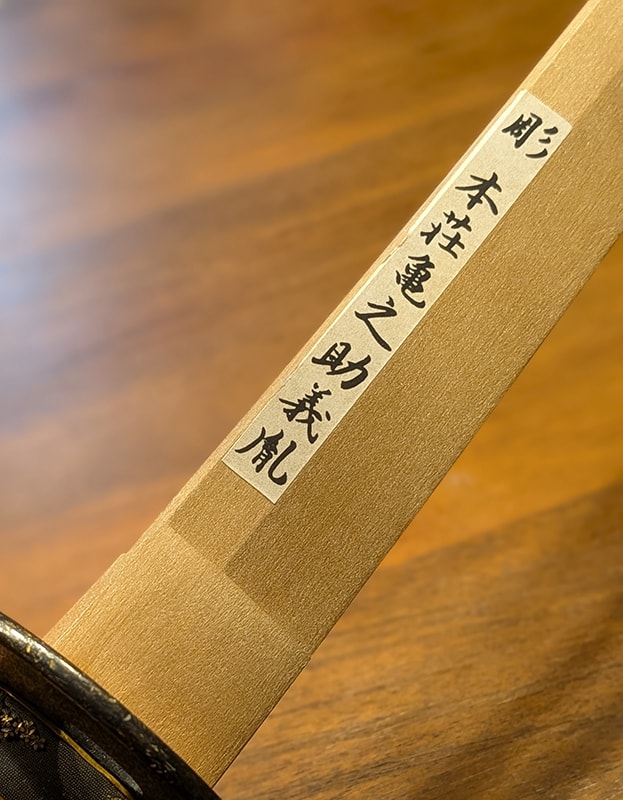 彫 本荘亀之助義胤